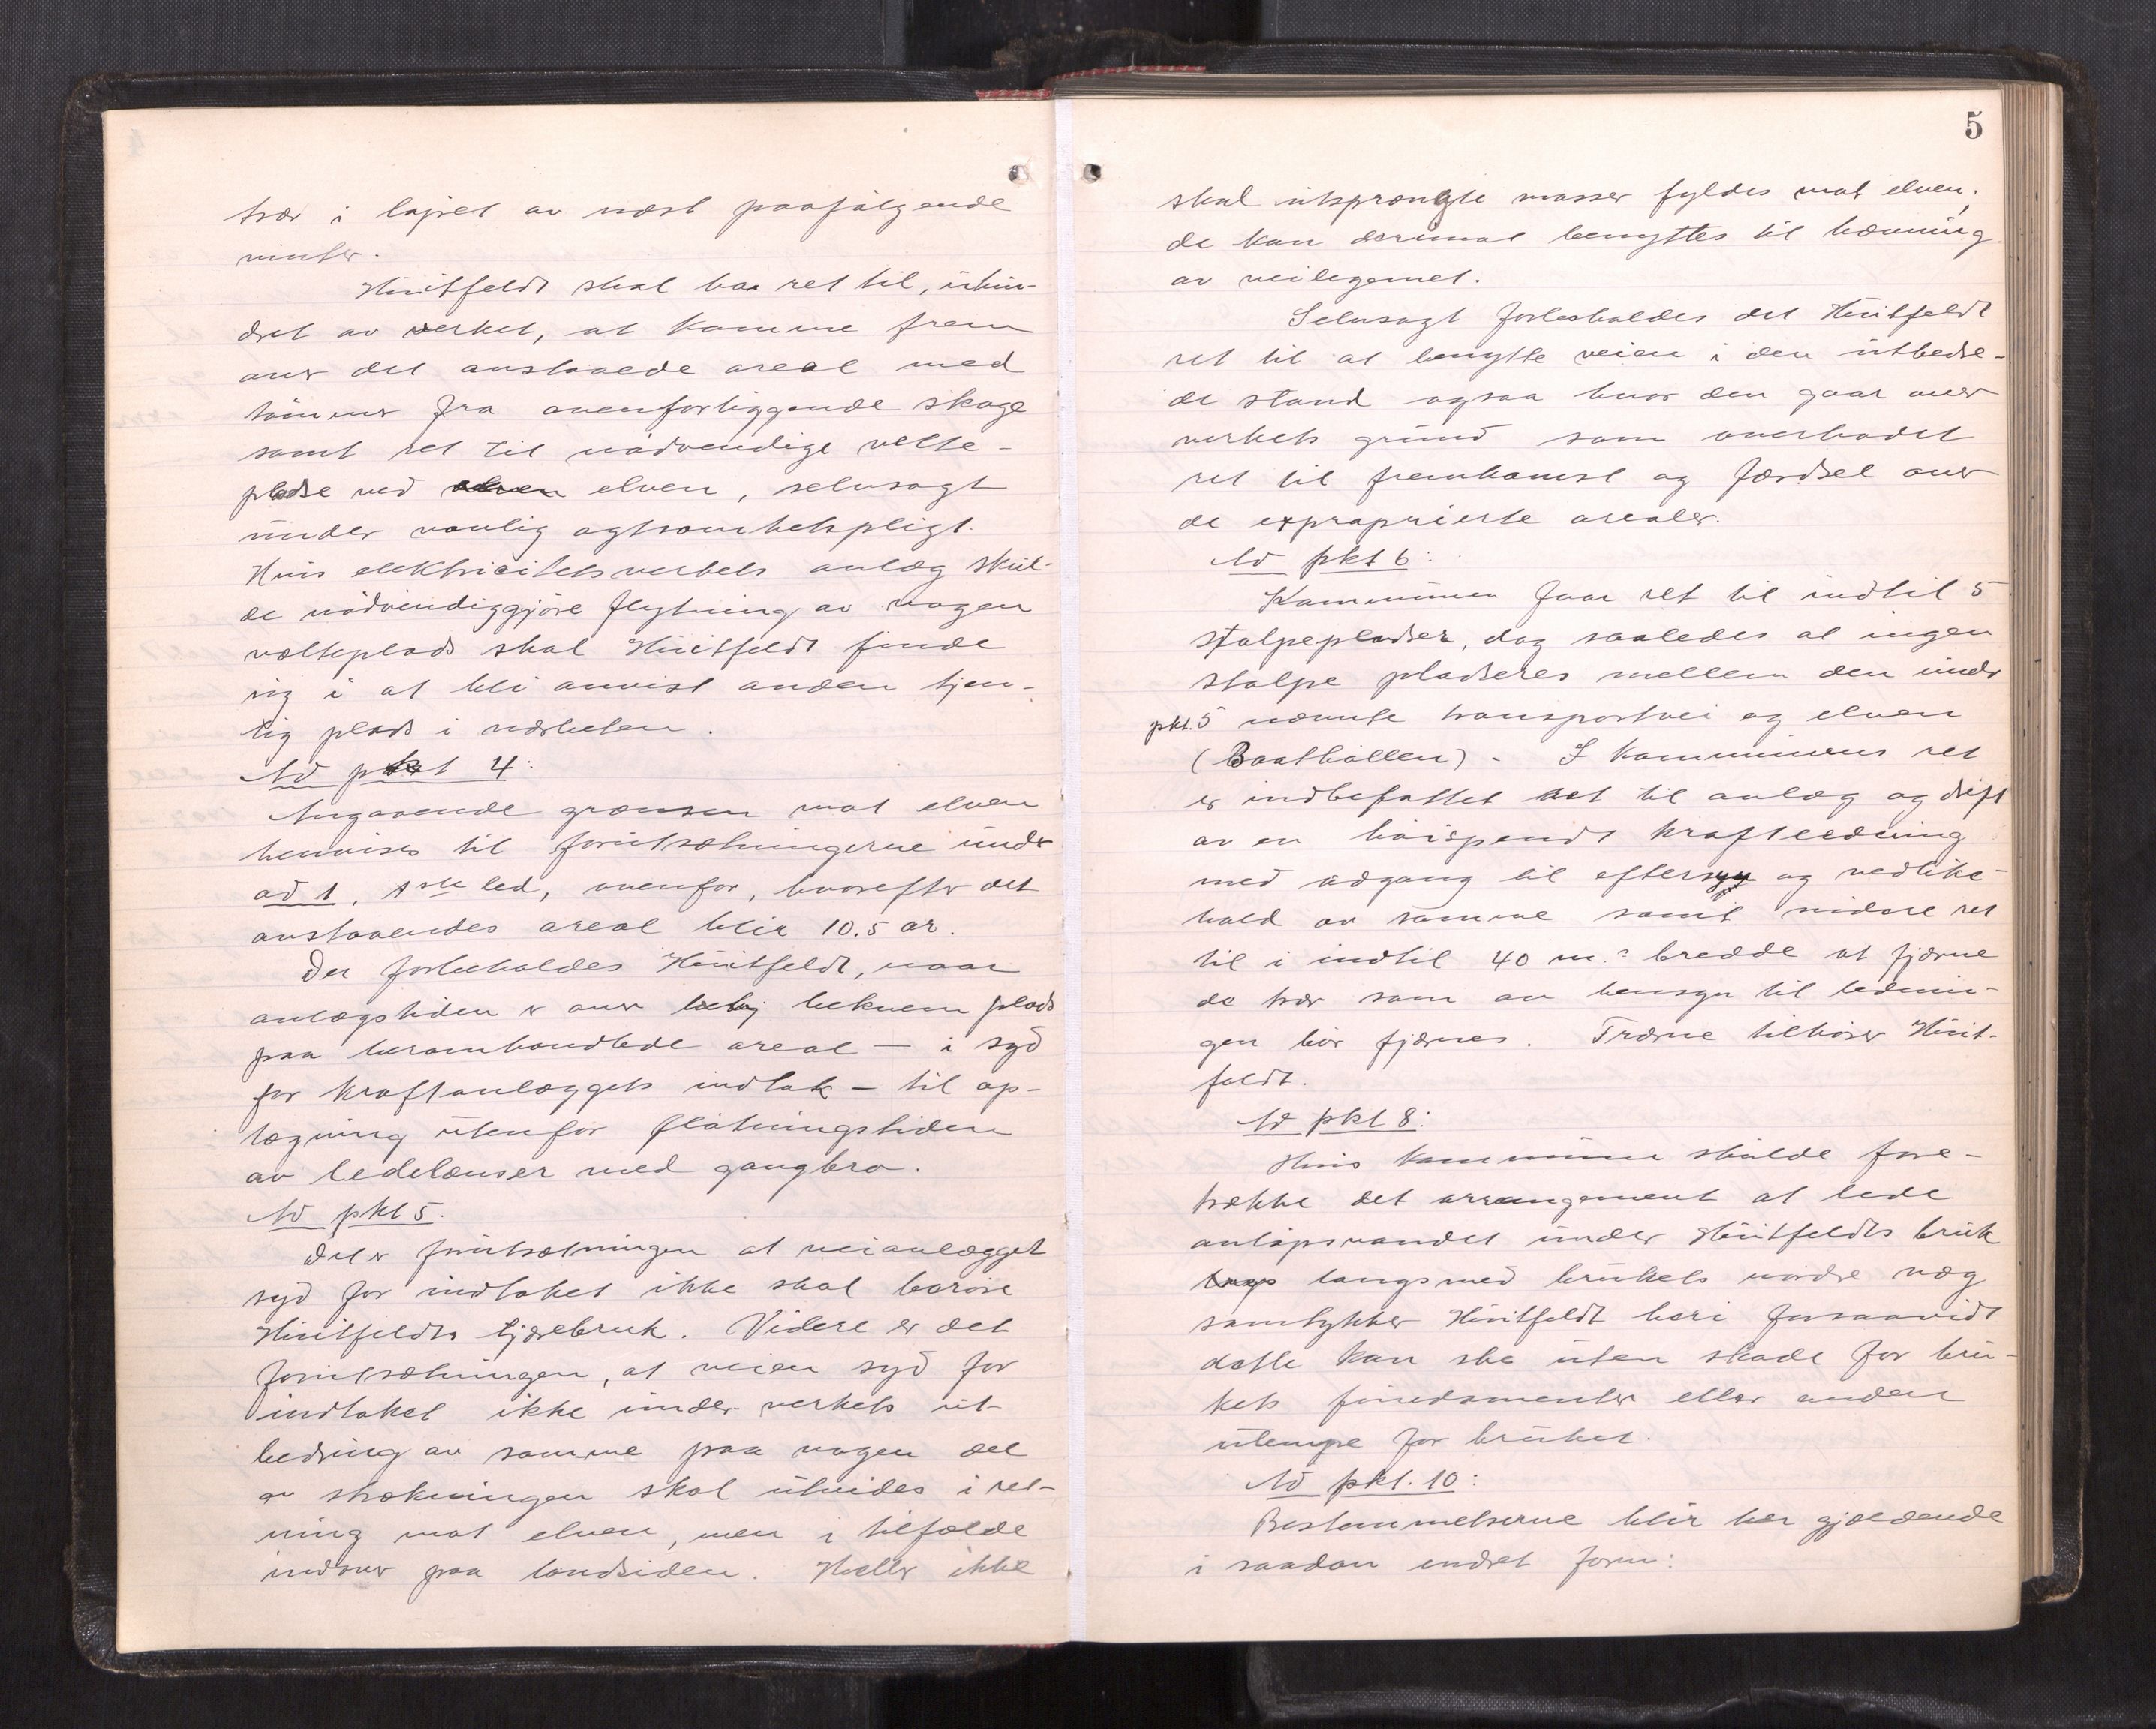 trær i løpet av næst paafølgende
vinter.
Huitfeldt skal ha ret til, uhin-
dret av verket, at komme frem
over det avstaaede areal med
tømmer fra ovenforliggende skoge
samt ret til nødvendige velte-
pladse ved elven, selvsagt
under vanlig agtsomhetspligt.
Hvis elektricitetsverkets anlæg skul-
de nødvendiggjøre flytning av nogen
velteplads skal Huitfeldt finde
sig i at bli anvist anden tjen-
lig plads i nærheten.
Ad pkt 4:
Angaaende grænsen mot elven
henvises til forutsætningerne under
ad 1, 1ste led, ovenfor, hvorefter det
avstaaendes areal blir 10.5 ar.
Der forbeholdes Huitfeldt, naar
anlægstiden er over bekvem plads
paa heromhandlede areal – i syd
for kraftanlæggets indtak – til op-
lægning utenfor fløtningstiden
av ledelænser med gangbro.
Ad pkt 5.
Det er forutsætningen at veianlægget
syd for indtaket ikke skal berøre
Huitfeldts tjærebruk. Videre er det
forutsætningen, at veien syd for
indtaket ikke under verkets ut-
bedring av samme paa nogen del
av strækningen skal utvides i ret-
ning mot elven, men i tilfælde
indover paa landsiden. Heller ikke
5
skal utsprængte masser fyldes mot elven;
de kan derimot benyttes til hævning
av veilegemet.
Selvsagt forbeholdes det Huitfeldt
ret til at benytte veien i den utbedre-
de stand ogsaa hvor den gaar over
verkets grund som overhodet
ret til fremkomst og færdsel over
de exproprierte arealer.
Ad pkt 6:
Kommunen faar ret til indtil 5
stolpepladser, dog saaledes at ingen
stolpe pladseres mellem den under
pkt. 5 nævnte transportvei og elven
(Baathøllen). I kommunens ret
er indbefattet ret til anlæg og drift
av en høispendt kraftledning
med adgang til eftersyn og vedlike-
hold av samme samt videre ret
til i indtil 40 m.s bredde at fjerne
de trær som av hensyn til lednin-
gen bør fjernes. Trærne tilhører Huit-
feldt.
Ad pkt 8:
Hvis kommunen skulde fore-
trække det arrangement at lede
avløpsvandet under Huitfeldts bruk
langsmed brukets nordre væg
samtykker Huitfeldt heri forsaavidt
dette kan ske uten skade for bru-
kets fundamenter eller anden
ulempe for bruket.
Ad pkt. 10:
Bestemmelserne blir her gjældende
i saadan endret form: